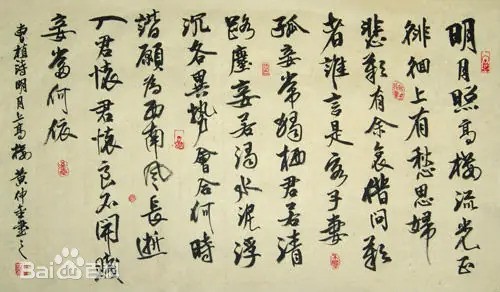 明月照高楼流光正
徘徊上有愁思婦
悲歎有余哀借問歎
者誰言是客子妻
孤妾常獨栖君若清
路塵妾若濁水泥浮
沉各異勢會合何時
諧願為西南風長逝
入君懷君懷良不開賤
妾當何依
曹植詩明月上高楼 黄仲金書之
Bai百科